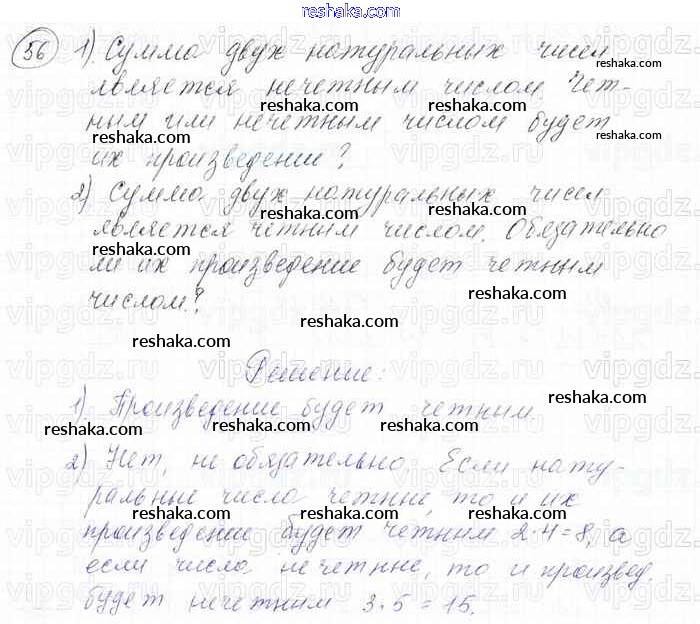 reshaka.com
56 1) Сумма двух натуральных чисел
reshaka.com
является нечетным числом. Чет-
reshaka.com reshaka.com reshaka.com
ным или нечетным числом будет
reshaka.com reshaka.com
их произведение?
2) Сумма двух натуральных чисел
reshaka.com reshaka.com
является четным числом. Обязательно
reshaka.com
ли их произведение будет четным
числом?
reshaka.com
Решение:
1) Произведение будет четным.
reshaka.com
reshaka.com reshaka.com
2) Нет, не обязательно. Если нату-
ральные числа четные, то и их
reshaka.com
произведение будет четным 2·4=8, а
reshaka.com reshaka.com
если числа нечетные, то и произвед.
reshaka.com
будет нечетным 3·5=15.
reshaka.com
vipgdz.ru